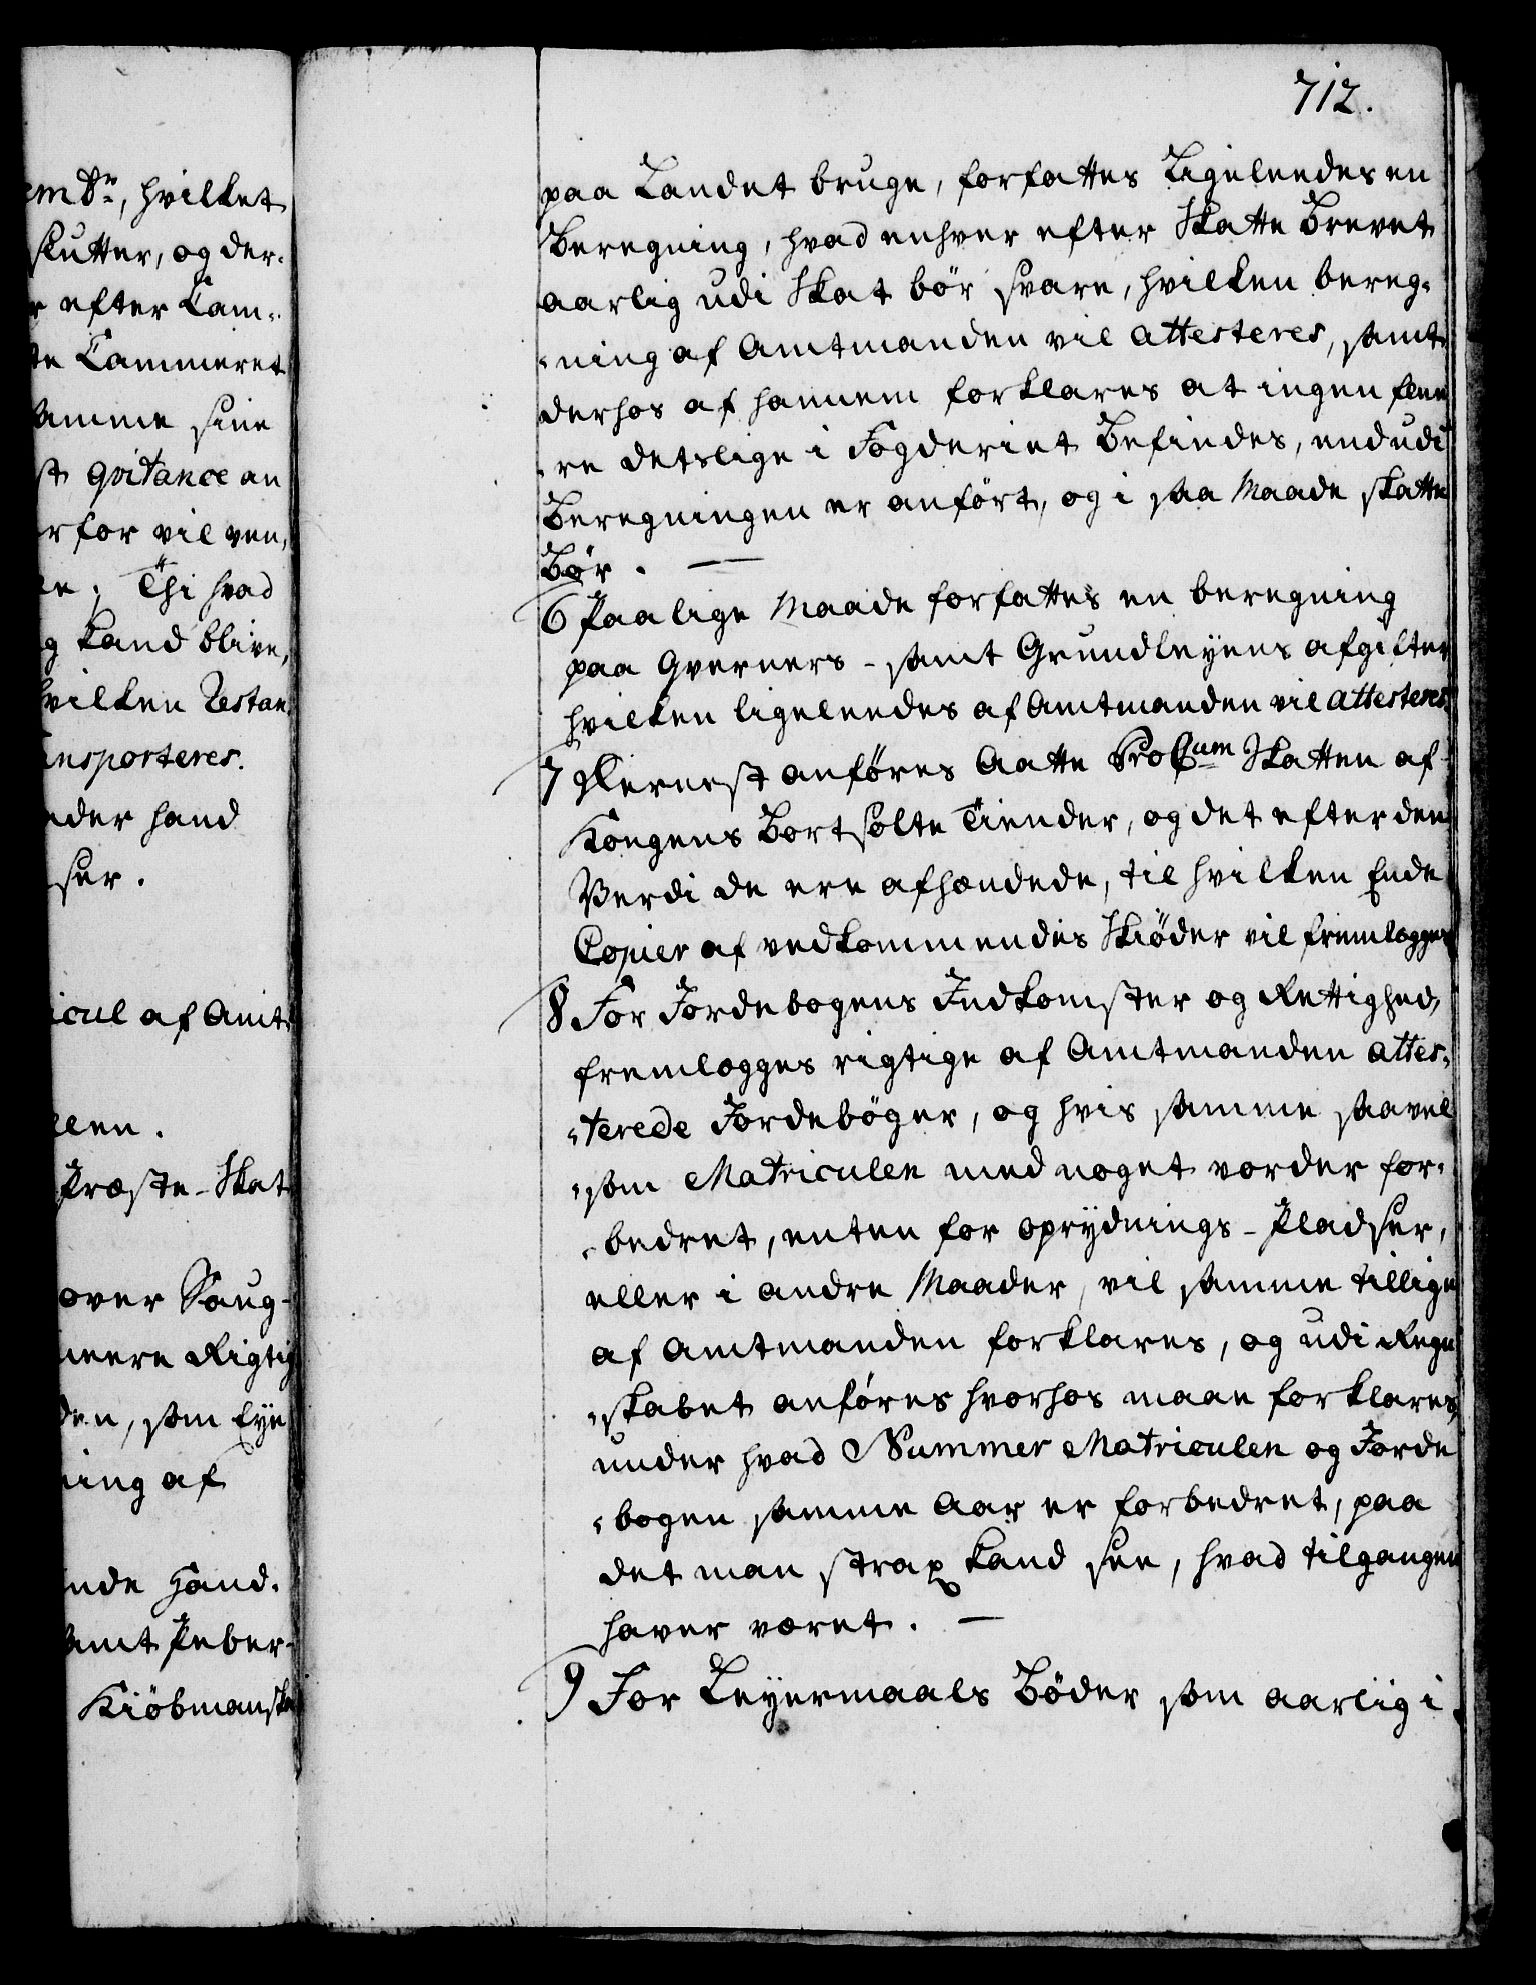 emb:, hvilket
slutter, og der-
r efter Cam-
te Cammeret
samme sine
st qvitance an
rfor vil ven,
re; Thi hvad
g kand blive,
hvilken Restan-
ansporteres.
nder haand
ser.
icul af Amt
len.
Præste-Skat
over Saug-
meere Rigtig
den, som Eye
ning af
nde Haand-
samt Peber-
Kiöbmanska
712.
paa Landet bruge, forfattes Ligeleedes en
Beregning, hvad enhver efter Skatte Brevet
aarlig udi Skat bör svare, hvilken bereg-
-ning af Amtmanden vil attesteres, samt
derhos af hannem forklares at ingen flee
-re detslige i Fogderiet Befindes, end udi
Beregningen er anfört, og i saa Maade skatte
Bör. —
6 Paa lige Maade forfattes en beregning
paa Qverners- samt Grundleyens afgifter
hvilken ligeleedes af Amtmanden vil attesteres.
7 Hernest anföres Aatte ProCum Skatten af
Kongens Bortsolte Tiender, og det efter den
Verdi de ere afhændede, til hvilken Ende
Copier af vedkommendes Skiöder vil fremlegges
8 For Jordebogens Indkomster og Rettighed,
fremlegges rigtige af Amtmanden attes-
-terede Jordeböger, og hvis samme saavel
-som Matriculen med noget vorder for-
-bedret, enten for oprydnings-Pladser,
eller i andre Maader, vil samme tillige
af Amtmanden forklares, og udi Regn
-skabet anföres hvorhos maae forklares,
under hvad Nummer Matriculen og Jorde
-bogen samme Aar er forbedret, paa
det man strax kand see, hvad tilgangen
haver været. —
9 For Leyermaals Böder som aarlig i